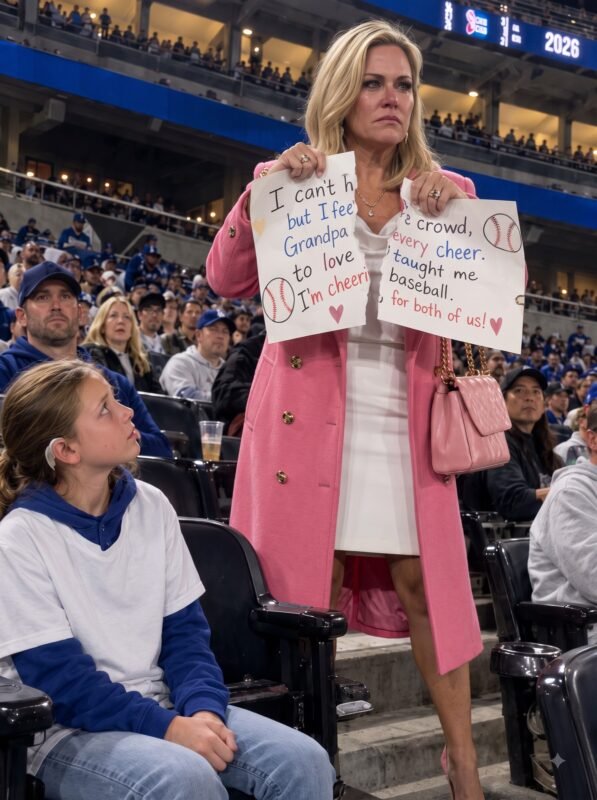 2026
I can't h
but I fee
Grandpa
to love
I'm cheeri
crowd,
every cheer.
taught me
baseball.
for both of us!